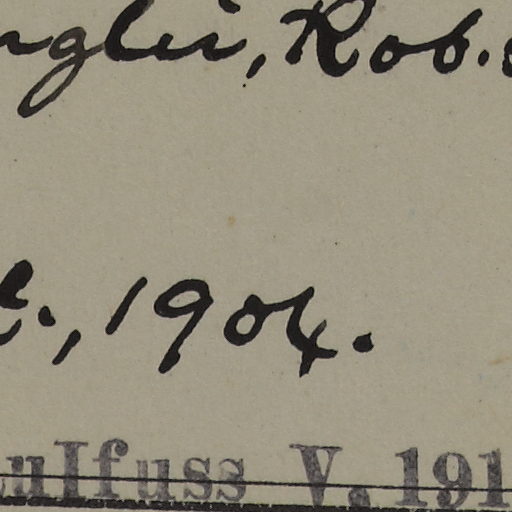 nglii, Rob.
., 1904.
ulfuss V. 191